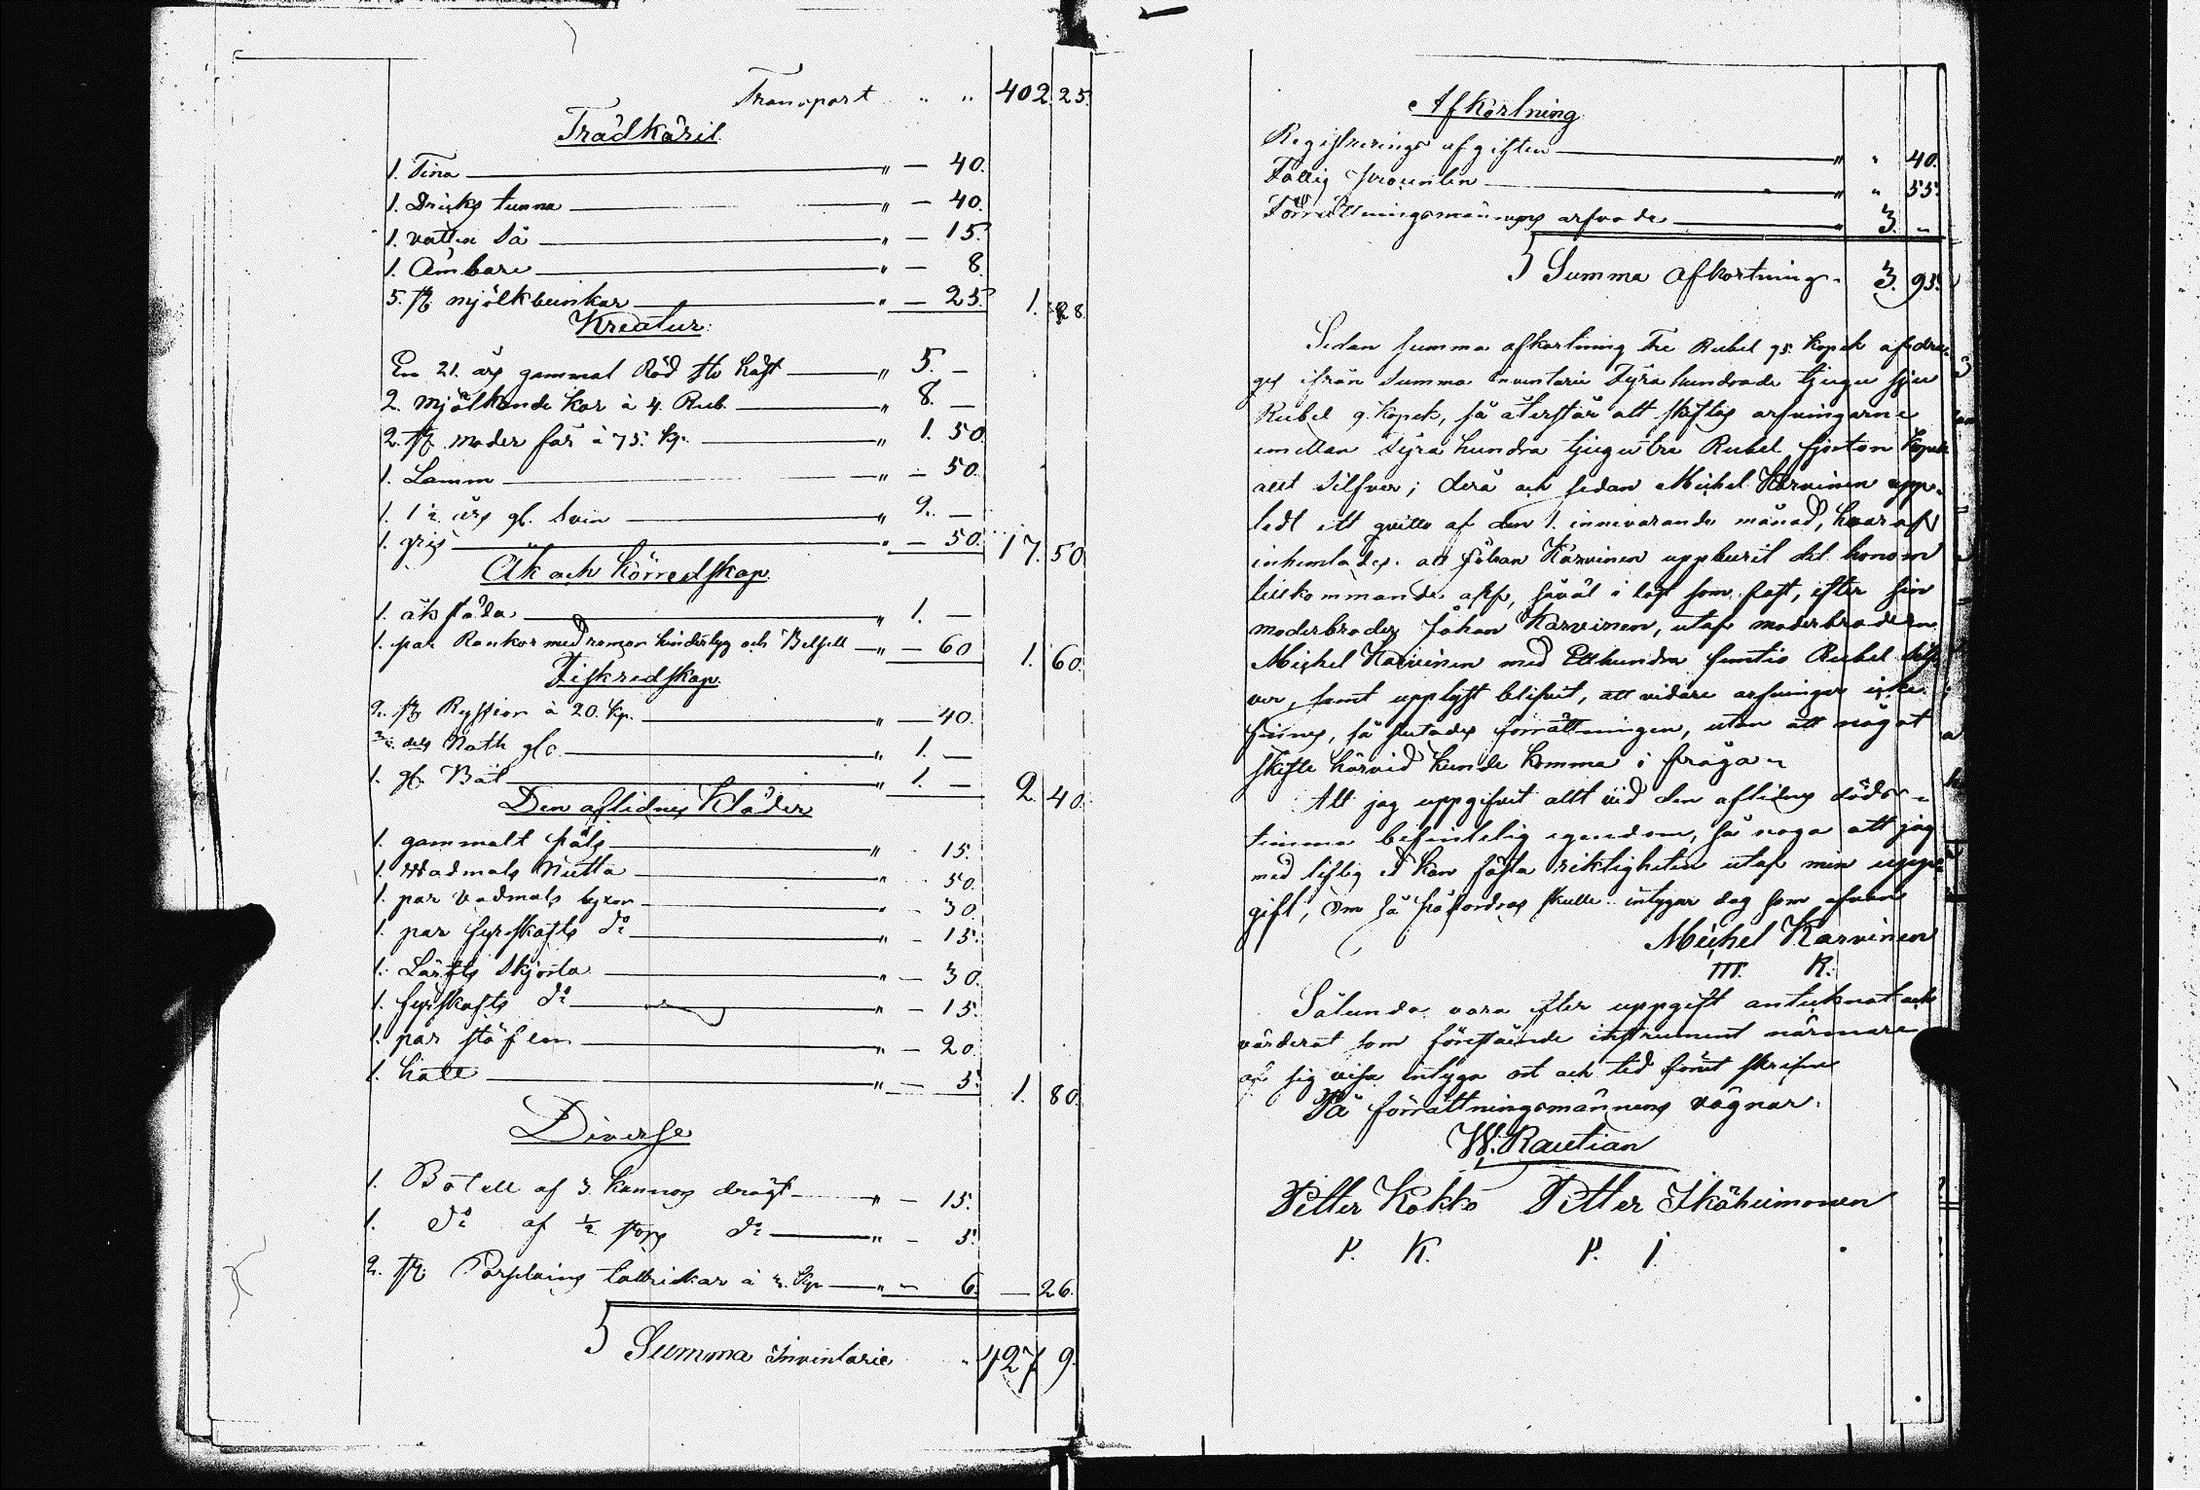 Transport " " 402. 25.
Trädkäril
1. Tina " — 40.
1. Dricks tunna " — 40.
1. vatten Så " — 15.
1. Ämbare " — 8.
5. st mjölkbunkar " — 25. 1. 28.
Kreatur.
En 21. års gammal Röd sto häst " 5. —
2. mjölkande Kor à 4. Rub. " 8. —
2. st moder får à 75. Kp. " 1. 50.
1. Lamm " — 50.
1. 1½ års gl. Svin " 2. —
1. gris " — 50. 17. 50.
Åk och Körredskap.
1. åk släda " 1. —
1. par Rankor med remar hindertyg och Betsell " — 60 1. 60.
Fiskredskap.
2. st Ryssior à 20. Kp. " — 40.
Noth gl. " 1. —
1. gl. Båt " 1. — 2. 40.
Den aflidnes Kläder
1. gammalt päls " 15.
1. Wadmals Mutta " 50.
1. par Vadmals byxor " 30.
1. par fyrskafts do " — 15.
1. Lärfts Skjorta " — 30.
1. fyrskafts do " — 15.
1. par stöflen " — 20.
1. hatt " — 5. 1. 80.
Diverse
1. Botell af 3. kannors drägt " — 15.
1. do af ½ stops do " — 5.
2. st Porslains tallrickar à 3. Kp " — 6. — 26.
Summa Inventarie " 427 9.
Afkortning
Registrerings afgiften " " 40.
Fattig procenten " " 55.
Förrättningsmännens arfvode " 3. —
Summa afkortning. 3. 95.
Sedan summa afkortning Tre Rubel 95. Kopek afdra-
ges ifrån Summa inventarie Fyra hundrade tjugu sju
Rubel 9. Kopek, så återstår att skiftas arfvingarne
emellan Fyra hundra tjugu tre Rubel fjorton Kopek
allt Silfver; derå och sedan Michel Karvinen upp-
tedt ett qvitto af den 1. innevarande månad, hvaraf
inhemtades att Johan Karvinen uppburit det honom
tillkommande arf, såväl i löst som fast, efter sin
moderbroder Johan Karvinen, utaf moderbrodern
Michel Karvinen med Etthundra femtio Rubel Silf-
ver, samt upplyst blifvit, att vidare arfvingar icke
finnes, så slutades förrättningen, utan att något
skifte härvid kunde komma i fråga.
Att jag uppgifvit allt vid den aflidnes döds-
timma befintelig egendom, så noga att jag
med liflig Ed kan fästa riktigheten utaf min upp-
gift, om så påfordras skulle intygar dag som ofvan
Michel Karvinen
M. K.
Sålunda vara efter uppgift antecknat och
värderat som förestående instrument närmare
af sig visar intyga ort och tid förut skrifne
På förrättningsmännens vägnar:
W. Rautian
Petter Kokko Petter Ikäheimonen
P. K. P. I.